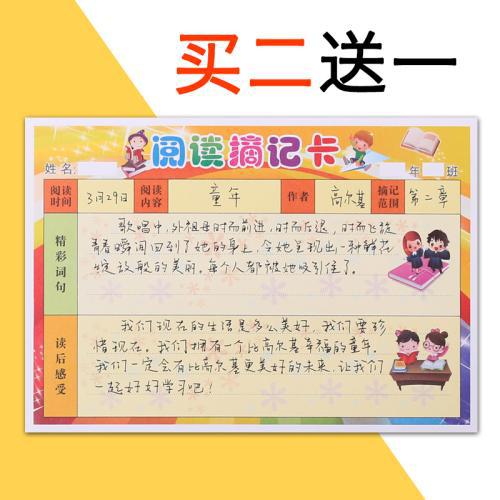 买二送一
阅读摘记卡
姓名 年 班
阅读时间 3月29日 阅读内容 童年 作者 高尔基 摘记范围 第二章
精彩词句
歌唱中,外祖母时而前进,时而后退,时而飞旋
青春瞬间回到了她的身上,令她呈现出一种鲜花
绽放般的美丽。每个人都被她吸引住了。
读后感受
我们现在的生活是多么美好,我们要珍
惜现在。我们拥有一个比高尔基幸福的童年。
我们一定会有比高尔基更美好的未来,让我们
一起好好学习吧!